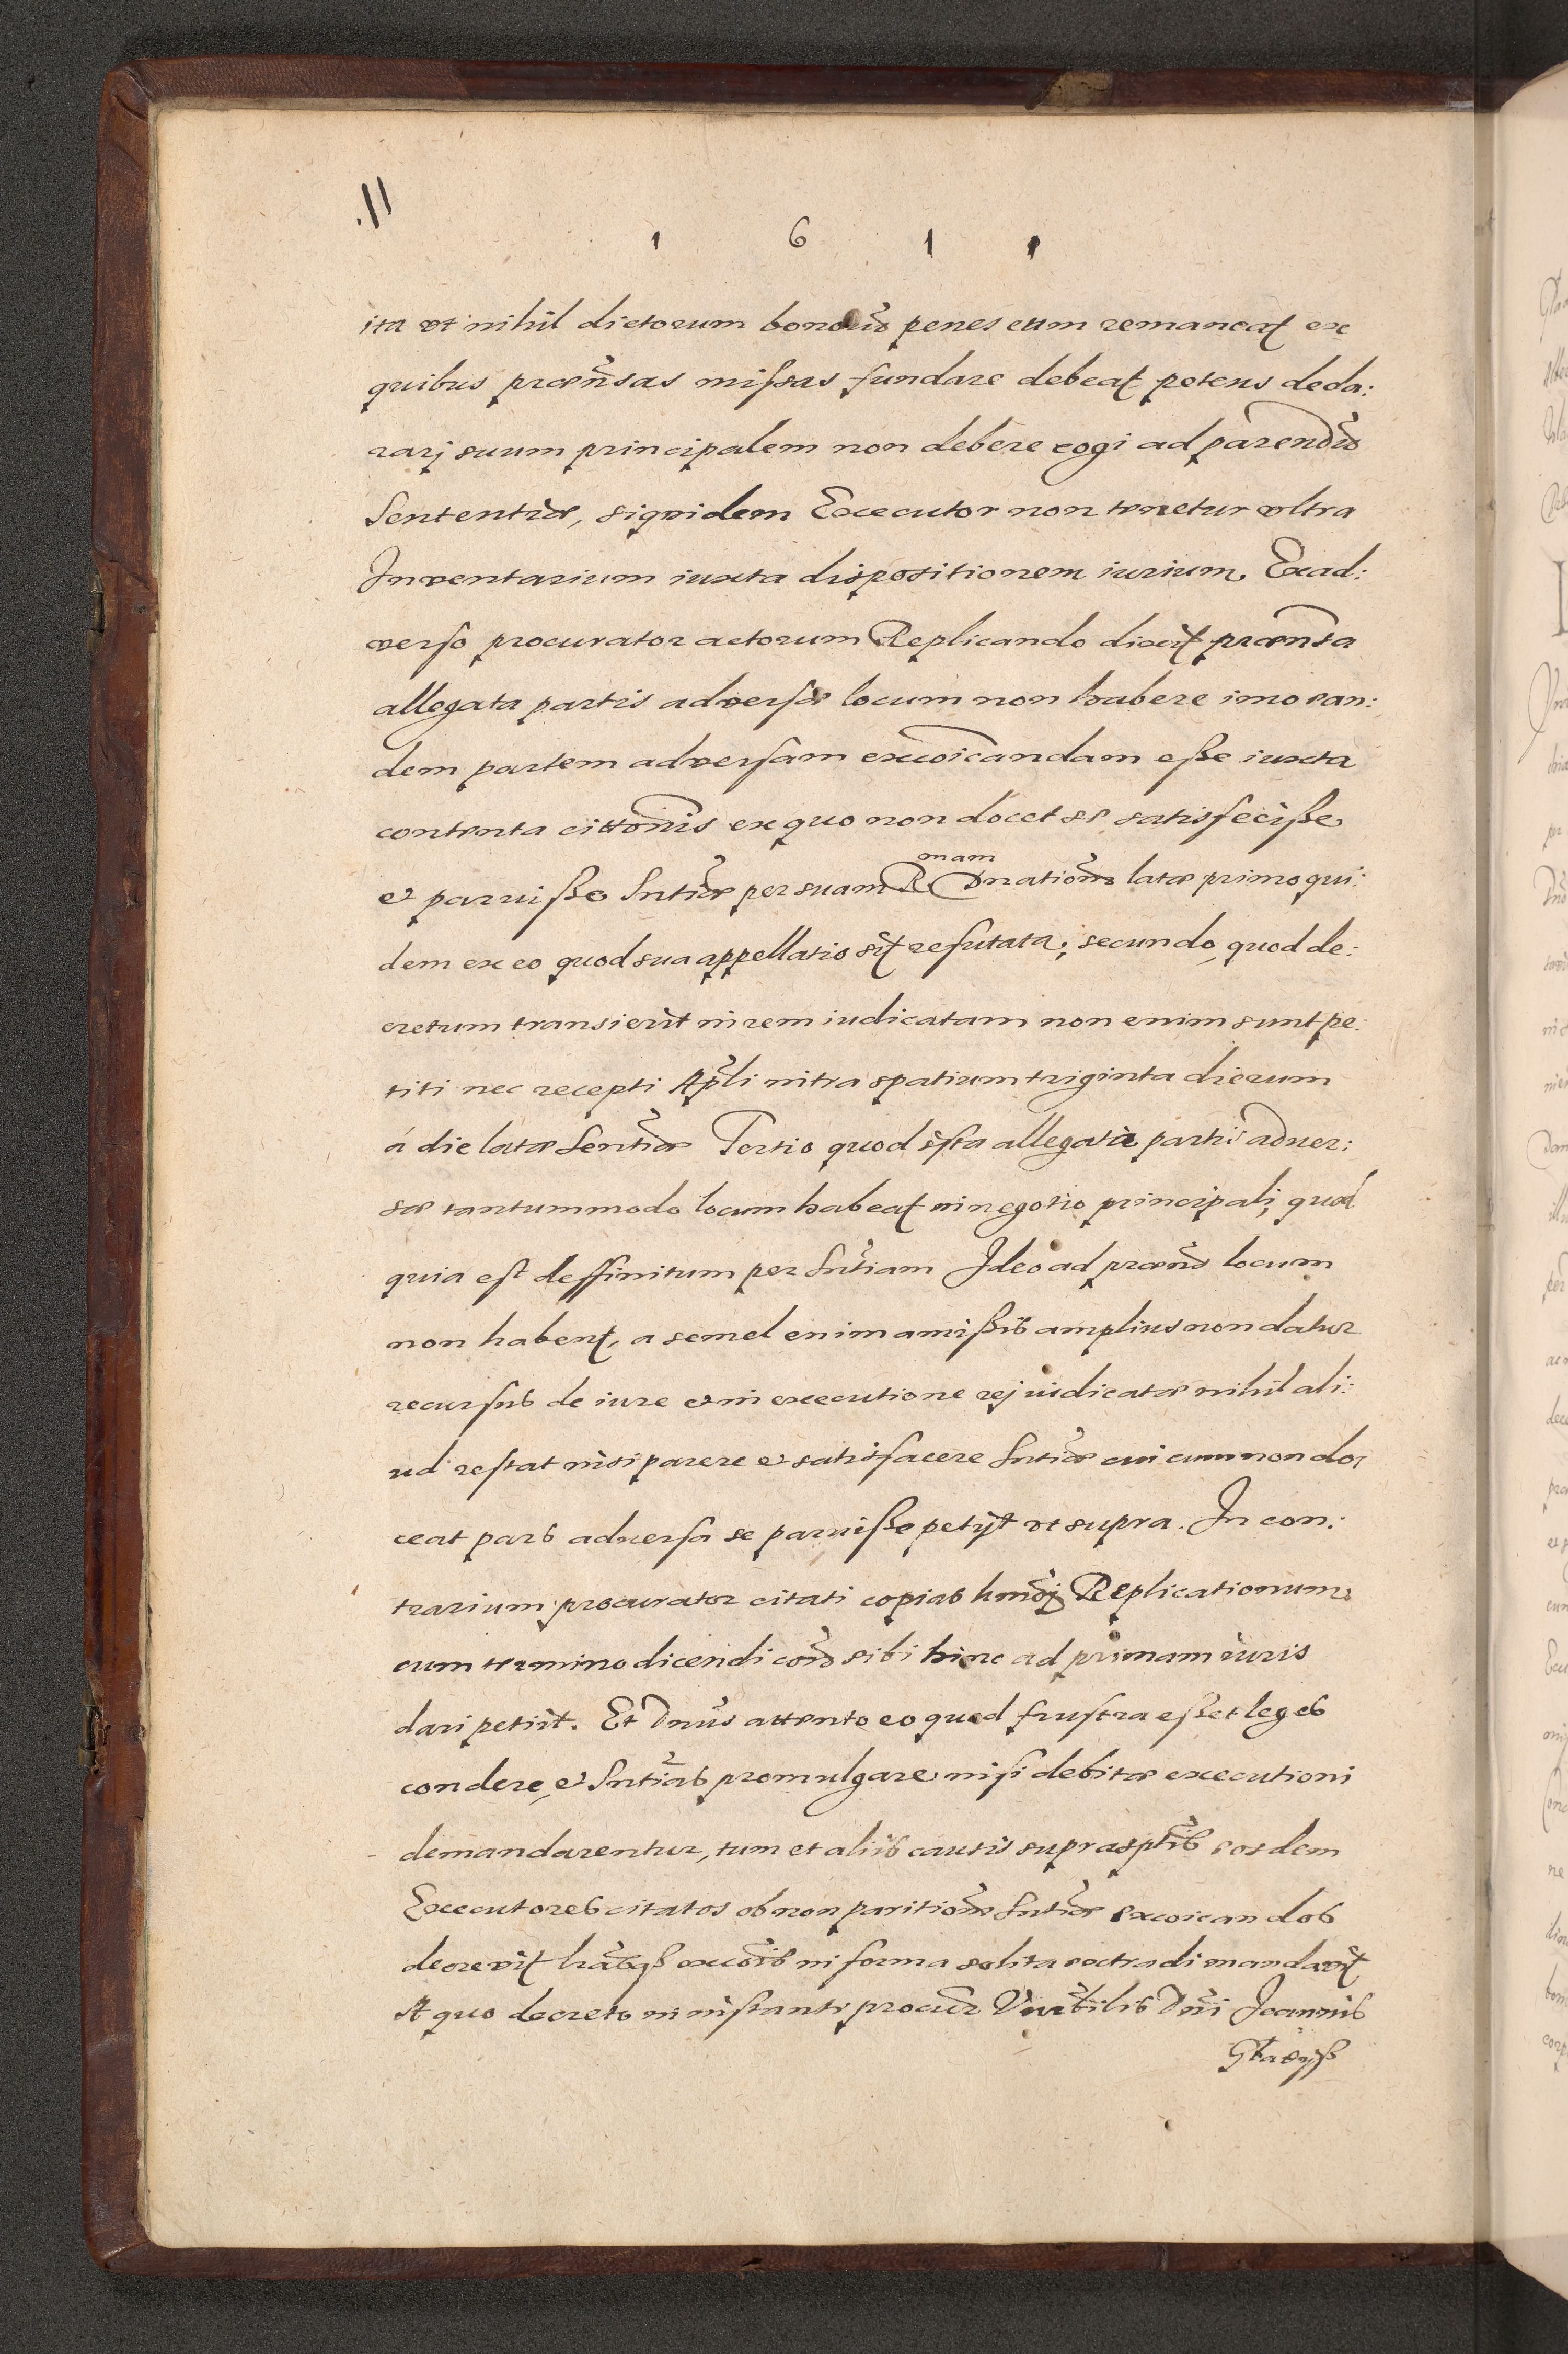 11
1 6 1 1
ita vt nihil dictorum bonorũ penes eum remaneat ex
quibus præñsas missas fundare debeat petens decla:
rarj suum principalem non debere cogi ad parendũ
Sententiæ, siquidem Executor non tenetur vltra
Inventarium iuxta dispositionem iurium. Exad:
verso procurator actorum Replicando dixit præñsa
allegata partis adversæ locum non habere imo ean:
dem partem adversam excoĩcandam esse iuxta
contenta cittõnis ex quo non docet se satisfecisse
et paruisse Sntiæ per suam R Dnationẽ latæ primo qui:
onam
dem ex eo quod sua appellatio sit refutata; secundo quod de:
cretum transierit in rem iudicatam non enim sunt pe:
titi nec recepti Apl̃i intra spatium triginta dierum
á die latæ Sentiæ Tertio quod ista allegata partis aduer:
sæ tantummodo locum habeat in negotio principali, quod
quia est deffinitum per Sntiam Ideo ad præns locum
non habent, a semel enim amissis amplius non datur
recursus de iure et in executione rej iudicatæ nihil ali:
ud restat nisi parere et satisfacere Sntiæ cui cum non do:
ceat pars aduersa se paruisse petijt vt supra. In con:
trarium procurator citati copias hmõj Replicationum
cum termino dicendi cõn sibi hinc ad primam iuris
dari petiit. Et Dnũs attento eo quod frustra esset leges
condere, et Sntias promulgare nisi debitæ executioni
demandarentur, tum et aliis causis suprasptis eosdem
Executores citatos ob non paritionẽ Sntiæ excoicandos
decrevit excõis in forma solita extradi mandavit
A quo decreto in instanti procur Vnrbilis Dñi Joannis